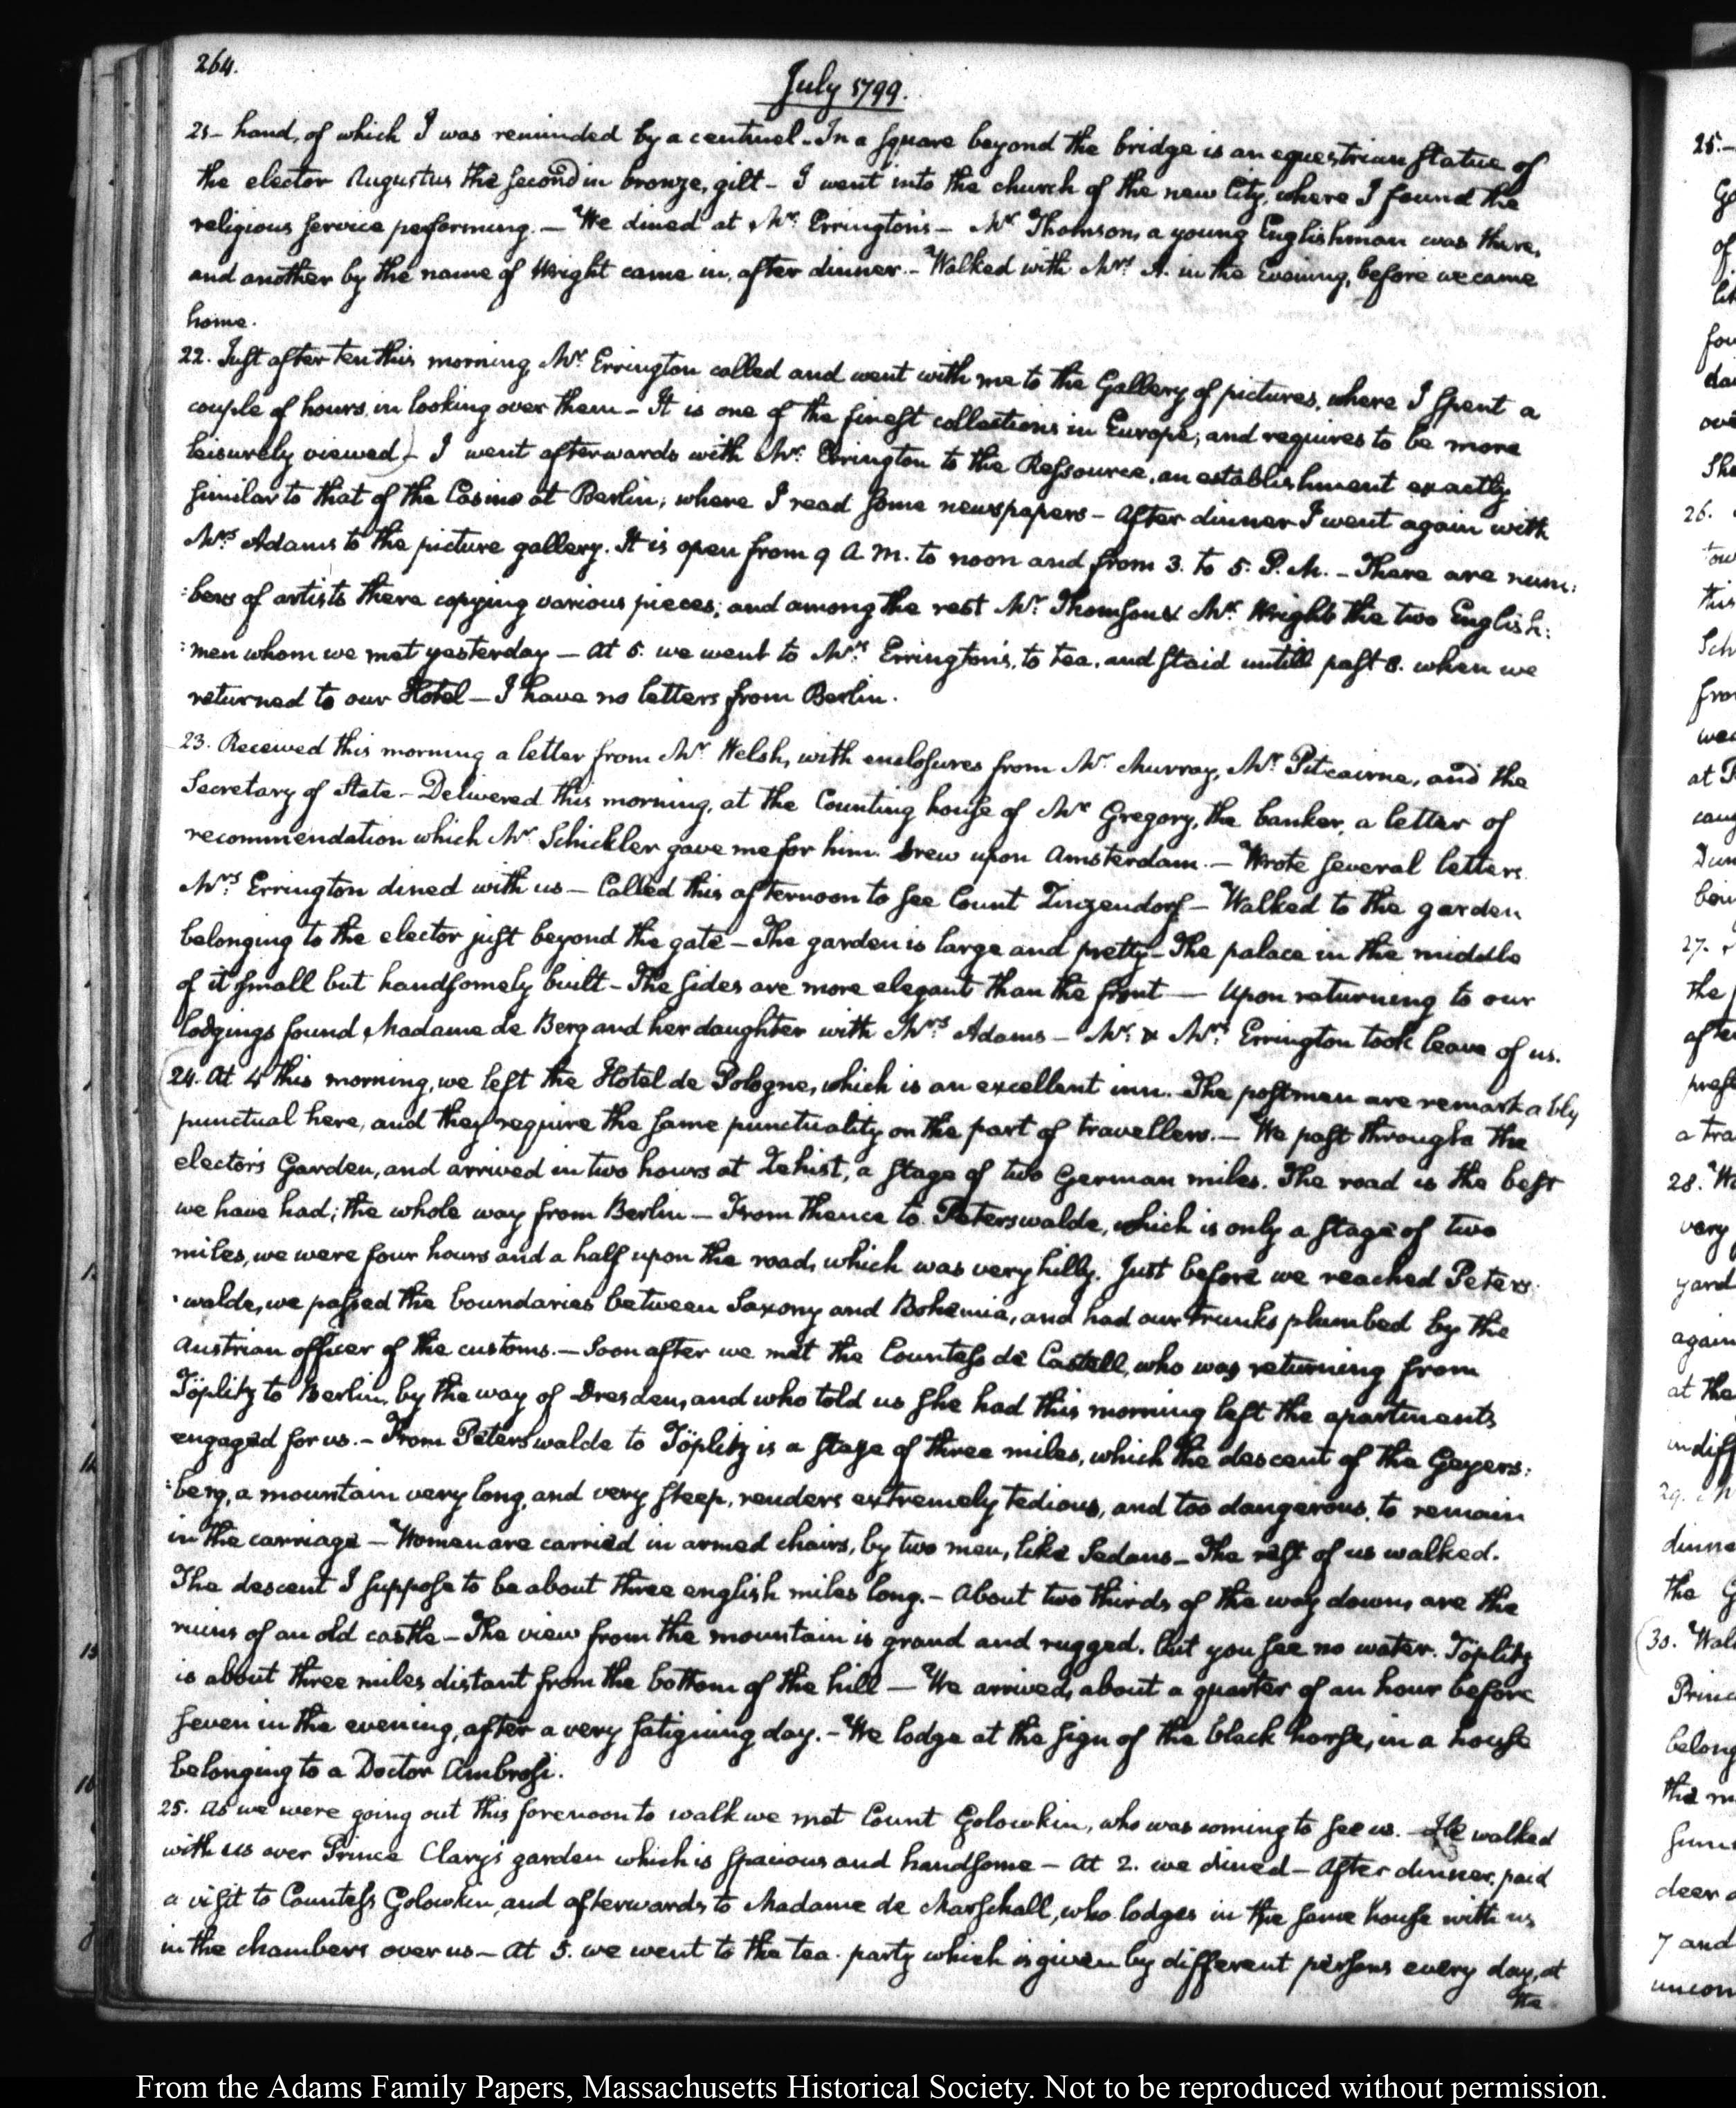 264.
July 1799.
21- hand, of which I was reminded by a centinel. In a square beyond the bridge is an equestrian statue of
the elector Augustus the second in bronze, gilt - I went into the church of the new City, where I found the
religious service performing. — We dined at Mr. Errington's - Mr Thomson, a young Englishman was there,
and another by the name of Wright came in, after dinner. - Walked with Mrs. A. in the Evening, before we came
home.
22. Just after ten this morning Mr. Errington called and went with me to the Gallery of pictures, where I spent a
couple of hours in looking over them - It is one of the finest collections in Europe; and requires to be more
leisurely viewed) - I went afterwards with Mr. Errington to the Ressource, an establishment exactly
similar to that of the Casino at Berlin; where I read some newspapers - After dinner I went again with
Mrs. Adams to the picture gallery. It is open from 9 A.M. to noon and from 3. to 5. P.M. - There are num:
:bers of artists there copying various pieces; and among the rest Mr. Thomson & Mr. Wright the two English:
:men whom we met yesterday — At 5. we went to Mrs. Errington's, to tea, and staid untill past 8. when we
returned to our Hotel — I have no letters from Berlin.
23. Received this morning a letter from Mr. Welsh, with enclosures from Mr. Murray, Mr. Pitcairne, and the
Secretary of State - Delivered this morning, at the Counting house of Mr. Gregory, the banker, a letter of
recommendation which Mr. Schickler gave me for him. Drew upon Amsterdam. — Wrote several letters.
Mrs. Errington dined with us — Called this afternoon to see Count Zinzendorf - Walked to the garden
belonging to the elector just beyond the gate - The garden is large and pretty - The palace in the middle
of it small but handsomely built - The sides are more elegant than the front — Upon returning to our
lodgings found Madame de Berg and her daughter with Mrs. Adams - Mr. & Mrs. Errington took leave of us.
24. At 4 this morning, we left the Hotel de Pologne, which is an excellent inn. The postmen are remarkably
punctual here, and they require the same punctuality on the part of travellers. — We past through the
elector's Garden, and arrived in two hours at Zehist, a stage of two German miles. The road is the best
we have had; the whole way from Berlin — From thence to Peterswalde, which is only a stage of two
miles, we were four hours and a half upon the road, which was very hilly. Just before we reached Peters:
:walde, we passed the boundaries between Saxony and Bohemia, and had our trunks plumbed by the
Austrian officer of the customs. — Soon after we met the Countess de Castell, who was returning from
Töplitz to Berlin, by the way of Dresden, and who told us she had this morning left the apartments
engaged for us. - From Peterswalde to Töplitz is a stage of three miles, which the descent of the Geyers:
:berg, a mountain very long, and very steep, renders extremely tedious, and too dangerous, to remain
in the carriage — Women are carried in armed chairs, by two men, like Sedans - The rest of us walked.
The descent I suppose to be about three english miles long. - About two thirds of the way down, are the
ruins of an old castle - The view from the mountain is grand and rugged, but you see no water. Töplitz
is about three miles distant from the bottom of the hill — We arrived, about a quarter of an hour before
seven in the evening, after a very fatiguing day. - We lodge at the sign of the black horse, in a house
belonging to a Doctor Ambrosi.
25. As we were going out this forenoon to walk we met Count Golowkin, who was coming to see us. — He walked
with us over Prince Clary's garden which is spacious and handsome - At 2. we dined - After dinner, paid
a visit to Countess Golowkin, and afterwards to Madame de Marschall, who lodges in the same house with us,
in the chambers over us - At 5. we went to the tea party which is given by different persons every day, at
the
From the Adams Family Papers, Massachusetts Historical Society. Not to be reproduced without permission.